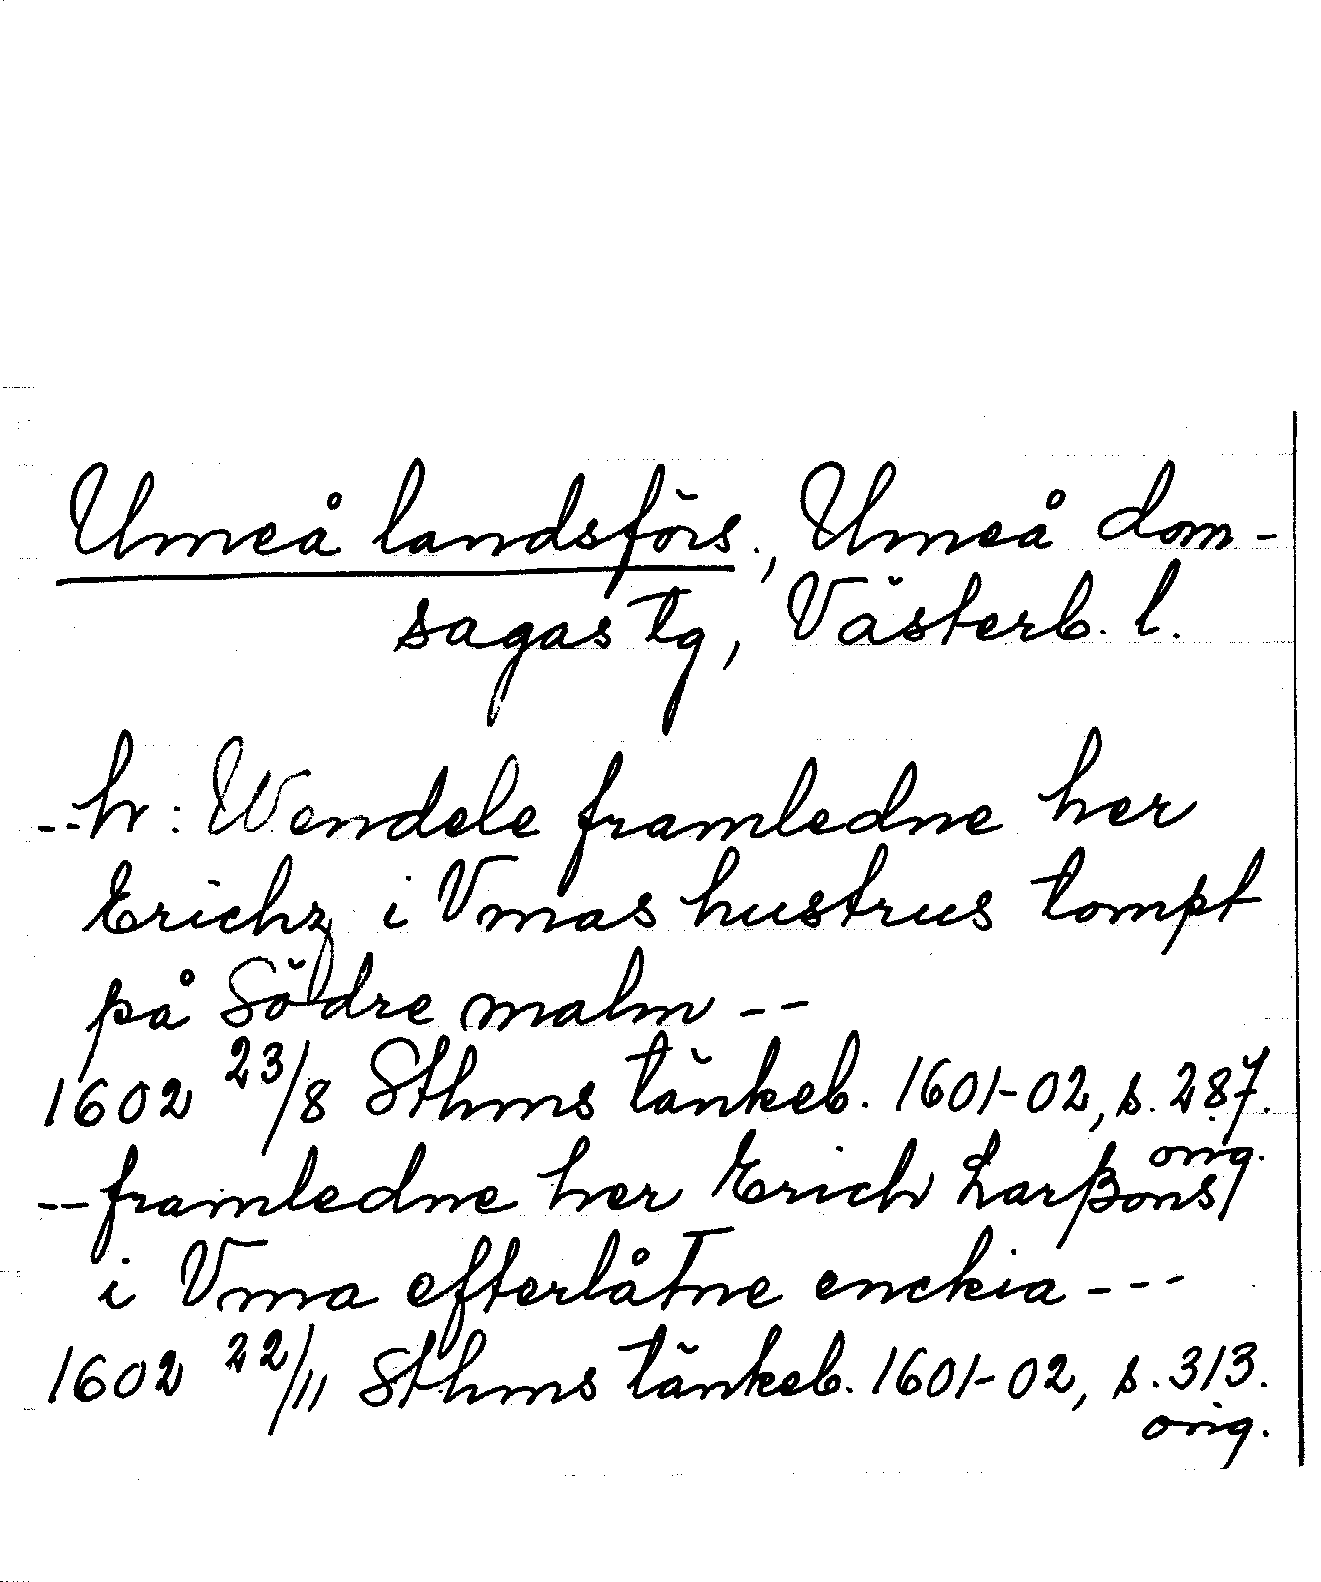 Umeå landsförs., Umeå dom-
sagas tg, Västerb. l.
--h: Wendele framledne her
Erichz i Vmas hustrus tompt
på Södre malm --
1602 23/8 Sthms tänkeb. 1601-02, s. 287.
orig.
--framledne her Erich Larßons
i Vma efterlåtne enckia ---
1602 22/11 Sthms tänkeb. 1601-02, s. 313.
orig.